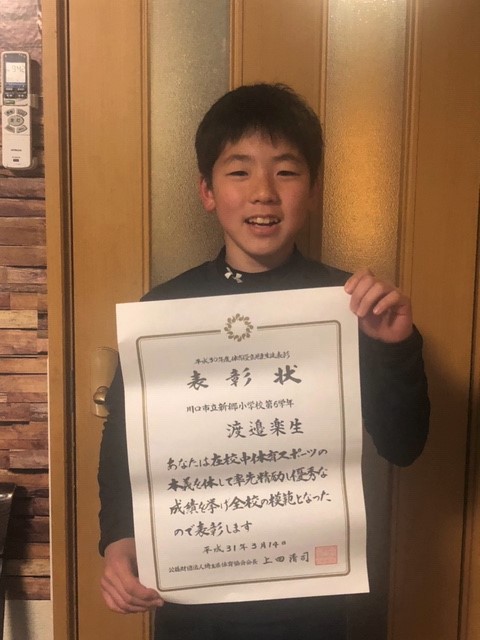 表彰状
川口市立新郷小学校第6学年
渡邉楽生
あなたは在校中体育スポーツの
本義を体して率先精励し優秀な
成績を挙げ全校の模範となった
ので表彰します
平成31年3月14日
公益財団法人埼玉県体育協会会長 上田清司